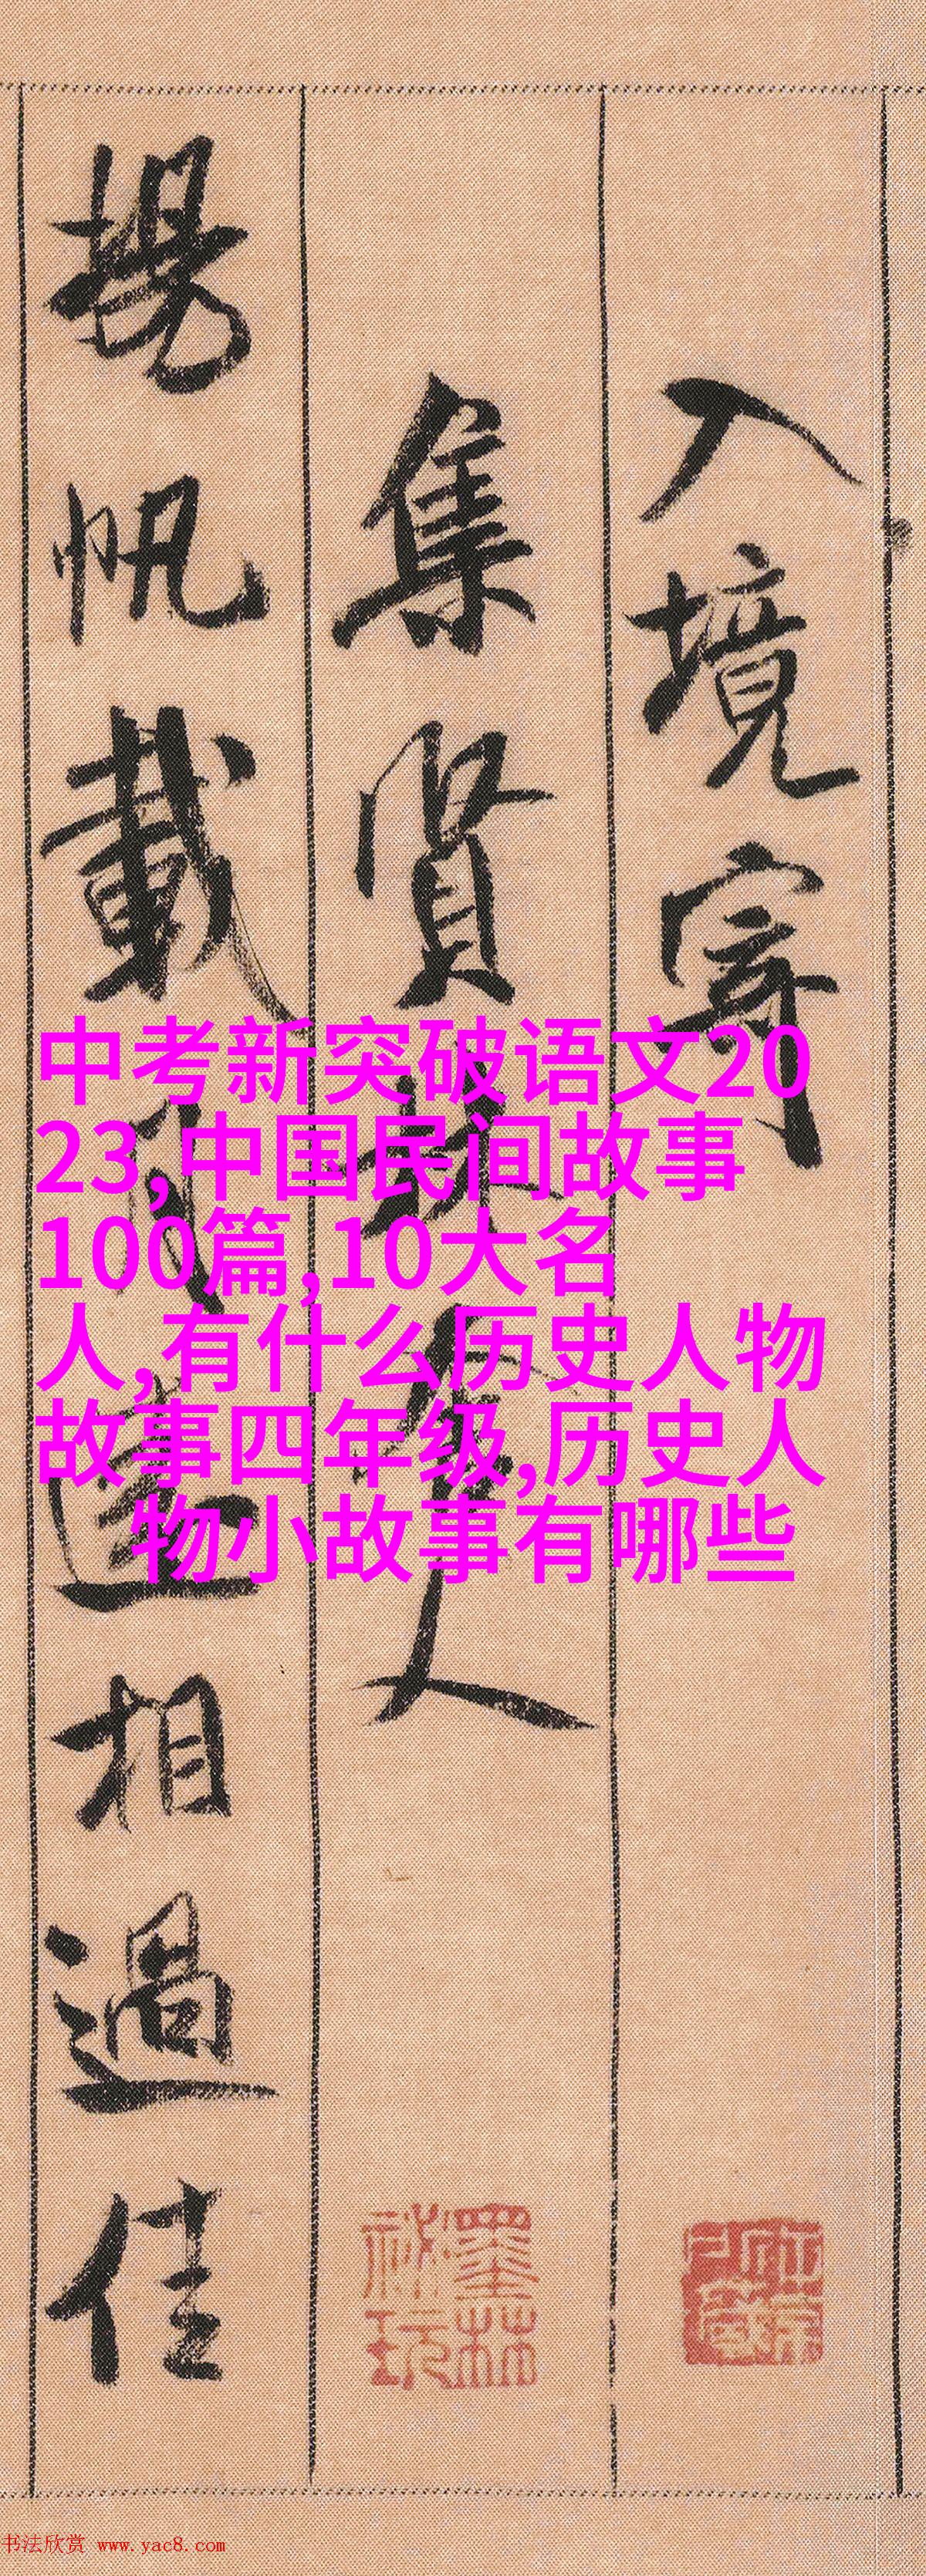 入境寄
集賢林舍人
揚帆載月遠相過佳
中考新突破语文20
23,中国民间故事
100篇,10大名
人,有什么历史人物
故事四年级,历史人
物小故事有哪些
墨林
祕玩
书法欣赏 www.yac8.com